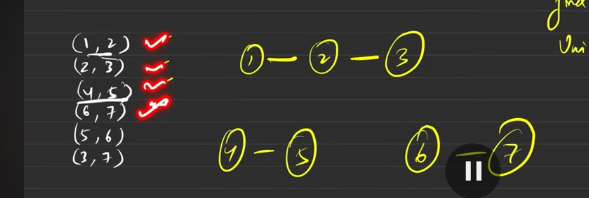 (1, 2)
(2, 3)
(4, 5)
(6, 7)
(5, 6)
(3, 7)
1 — 2 — 3
4 — 5
6 — 7